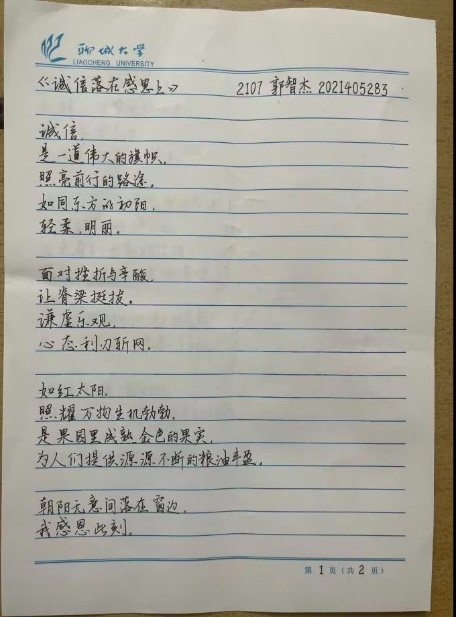 聊城大学
LIAOCHENG UNIVERSITY
《诚信落在感恩上》 2107 郭智杰 2021405283
诚信,
是一道伟大的旗帜,
照亮前行的路途。
如同东方的初阳,
轻柔,明丽。
面对挫折与辛酸,
让脊梁挺拔。
谦虚乐观,
心态利刃斩网。
如红太阳,
照耀万物生机勃勃,
是果园里成熟金色的果实,
为人们提供源源不断的粮油丰盈。
朝阳无意间落在窗边,
我感恩此刻。
第 1 页(共 2 页)